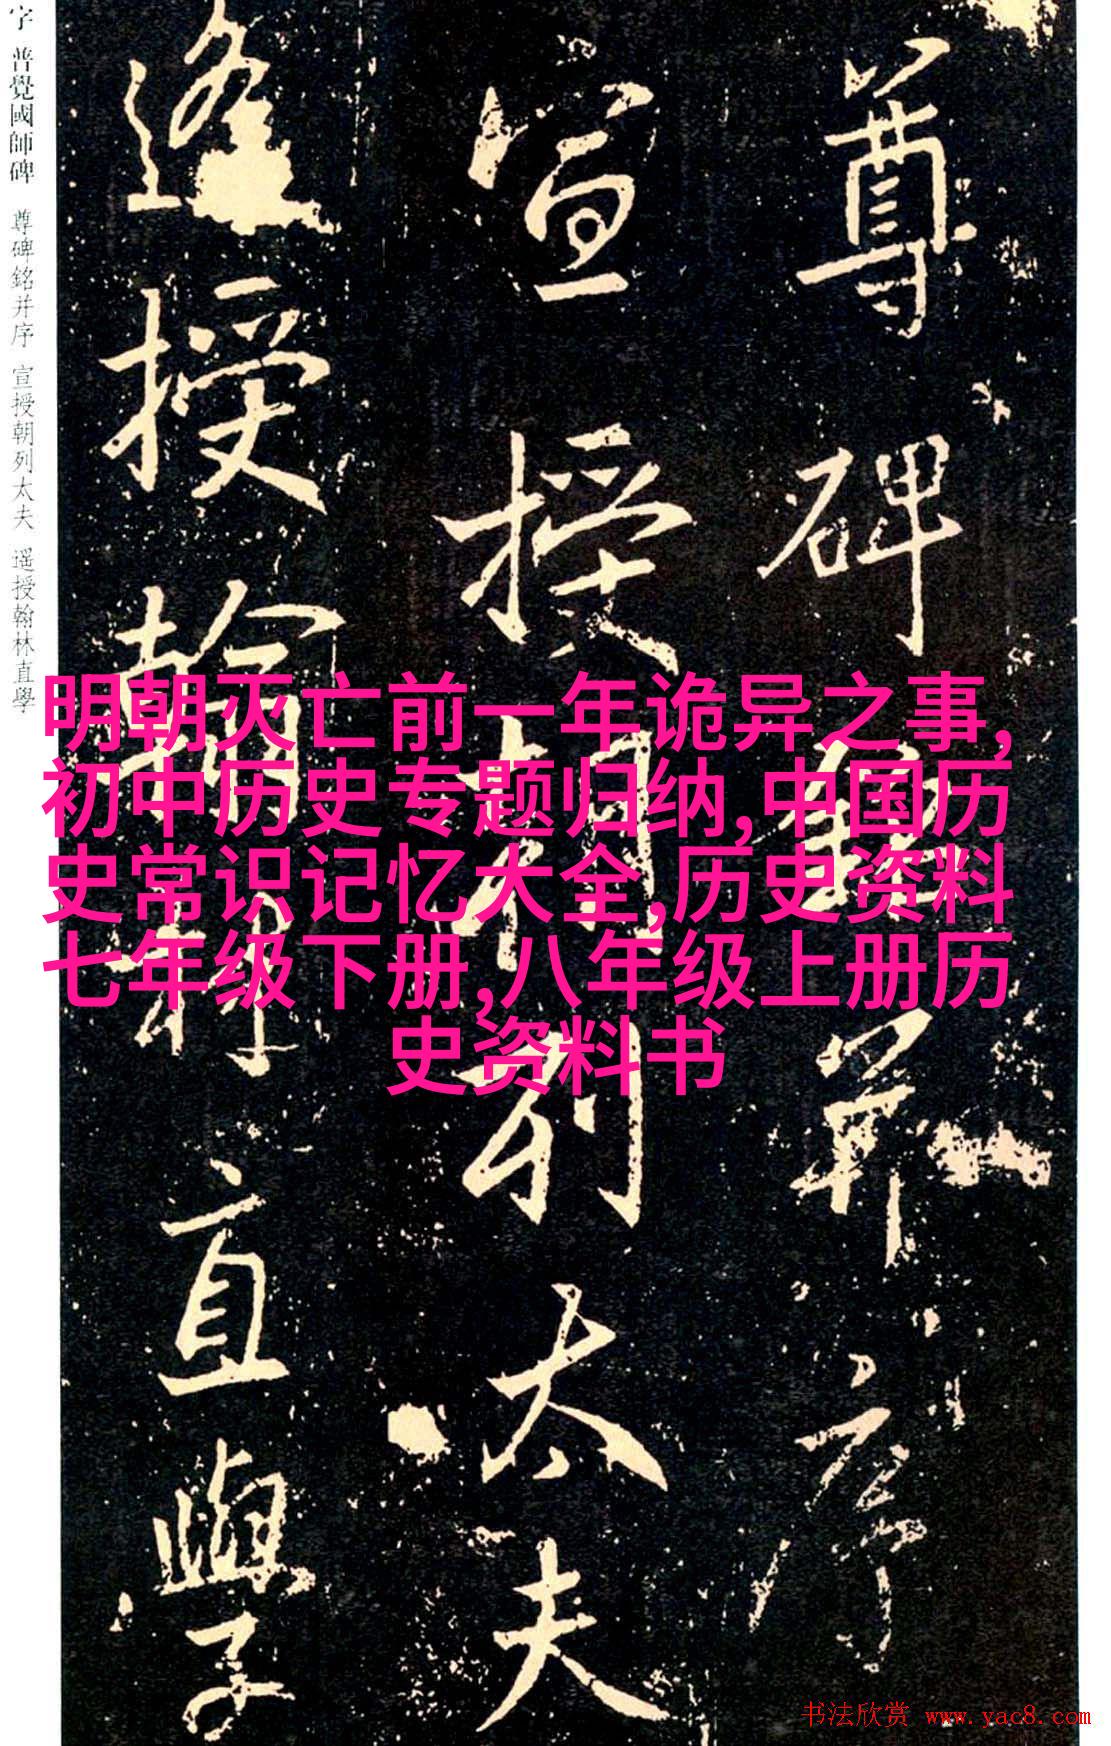 尊碑銘并序
宣授朝列太夫
遥授翰林直學
字 普覺國師碑 尊碑銘并序 宣授朝列太夫 遥授翰林直學
明朝灭亡前一年诡异之事,
初中历史专题归纳,中国历
史常识记忆大全,历史资料
七年级下册,八年级上册历
史资料书
书法欣赏 www.yac8.com